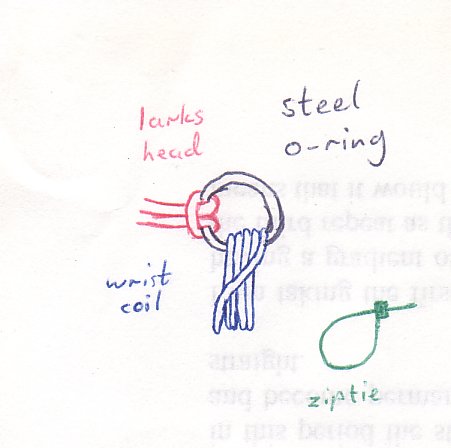 larks
head
steel
o-ring
wrist
coil
ziptie